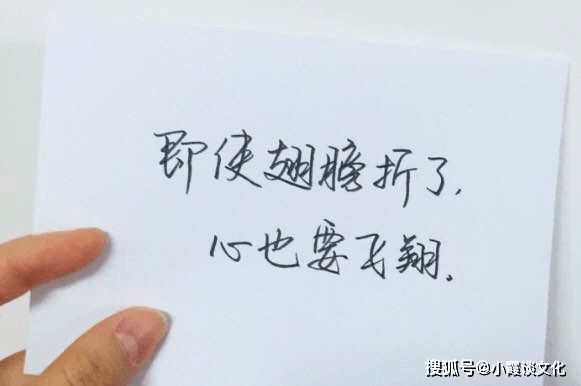 即使翅膀折了,
心也要飞翔.
搜狐号@小霞谈文化